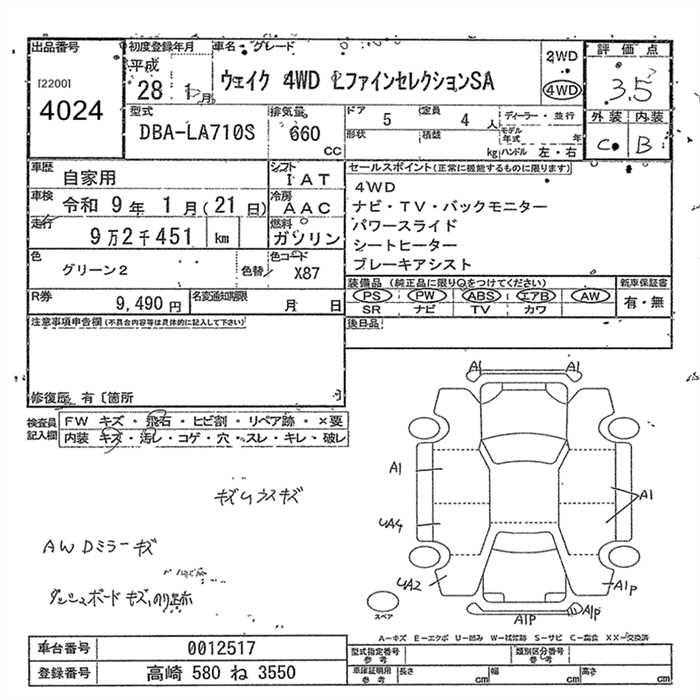 出品番号 初度登録年月 車名・グレード 評価点
[2200] 平成 2WD
4024 28 年 月 ウェイク 4WD LファインセレクションSA 4WD 3.5
型式 排気量 ドア 5 定員 4 人 ディーラー・並行 外装 内装
DBA-LA710S 660 cc 形状 積載 kg モデル年式 年 C B
ハンドル 左・右
車歴 自家用 シフト IAT セールスポイント(正常に機能するものに限ります)
車検 令和 9年 1月(21日) 冷房 AAC 4WD
走行 9万2千451 km 燃料 ガソリン ナビ・TV・バックモニター
パワースライド
色 グリーン2 色替 色コード X87 シートヒーター
ブレーキアシスト
R券 9,490円 名変通知期限 月 日 装備品(純正品に限り○をつけてください) 新車保証書
PS PW ABS エアB AW 有・無
SR ナビ TV カワ
注意事項申告欄(不具合内容等は具体的に記入して下さい) 後日品
修復歴 有〔箇所 〕
検査員記入欄 FW キズ・飛石・ヒビ割・リペア跡・×要
内装 キズ・汚レ・コゲ・穴・スレ・キレ・破レ
A1 A1
A1 A1
UA4
UA2 A1P
A1P A1P
AWDミラーキズ
スペア
A-キズ E-エクボ U-凹み W-補修跡 S-サビ C-腐食 XX-交換済
車台番号 0012517 型式指定番号 参考 類別区分番号 参考
登録番号 高崎 580 ね 3550 車庫証明用 参考 長さ cm 幅 cm 高さ cm